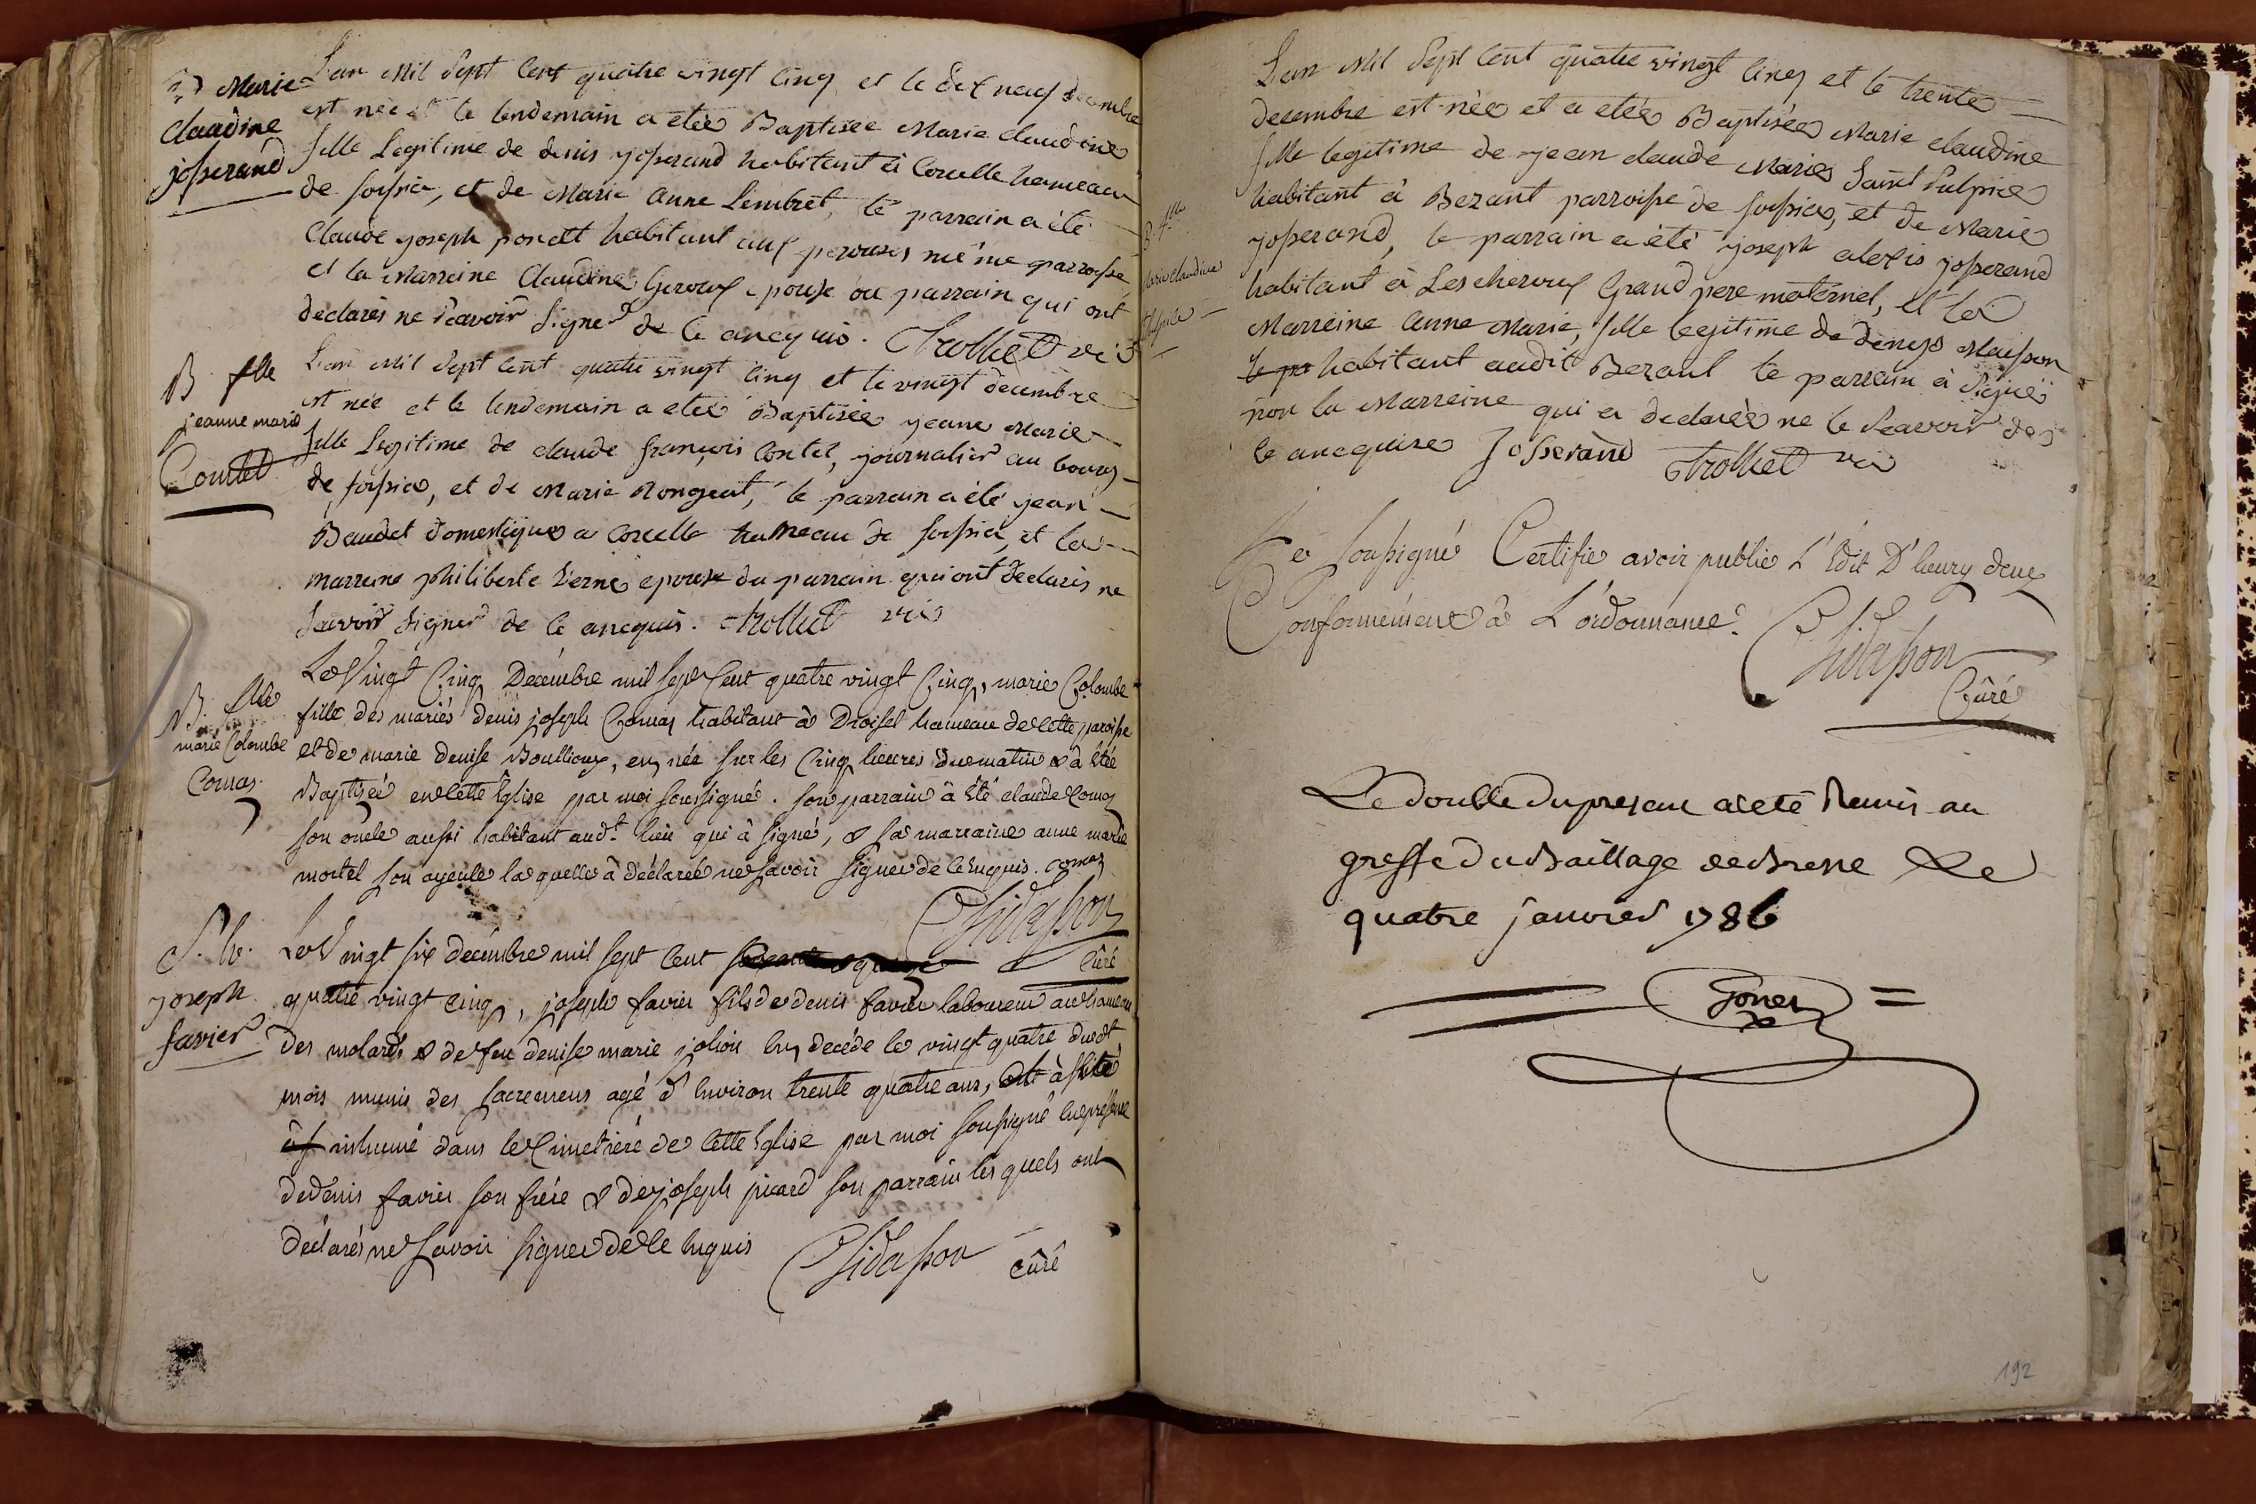 B Marie
Claudine
josserand
L'an mil Sept Cent quatre vingt cinq et le dix neuf decembre
est née et le lendemain a etée Baptisée Marie claudine
fille Legitime de denis josserand habitant à Corcelle hameau
de foissia, et de Marie Anne Lembret, le parrain a été
Claude joseph ponett habitant aux perouses même parroisse
et la Marreine Claudine Geroux epouse du parrain qui ont
declarés ne Scavoir Signer de ce ancquis. Chollet vic
B. flle
jeanne marie
Contet
L'an mil Sept Cent quatre vingt cinq et le vingt decembre
est née et le lendemain a etée Baptisée jeanne Marie
fille Legitime de claude françois Contet, journalier au bourg
de foissia, et de Marie Rongeat, le parrain a été jean
Baudet domestique a Corcelle hameau de foissia, et la
marreine philiberte Verne epouse du parrain qui ont declarés ne
Scavoir Signer de ce ancquis. Chollet vic
B. flle
marie Colombe
Comas
Le Vingt Cinq Decembre mil Sept Cent quatre vingt Cinq, marie Colombe
fille des mariés denis joseph Comas habitant à Droisel hameau de cette paroisse
et de marie denise Boullioux, en, née sur les Cinq heures du matin & à êtée
Baptisée en cette Eglise par moi soussigné. son parrain à êté claude Comas
son oncle aussi habitant audt. lieu qui à signé, & sa marraine anne marie
mortel son ayeule la quelle à déclarée ne Savoir signer de ce enquis. Comas
Chidasson
Curé
S. h.
joseph
favier
Le Vingt six decembre mil sept cent soixante & quinze
quatre vingt cinq, joseph favier fils de denis favier laboureur au hameau
des molards & de feu denise marie jolion en, decédé le vingt quatre dudt
mois munis des sacremens agé d'environ trente quatre ans, à été
inhumé dans le Cimetiere de cette Eglise par moi soussigné en presence
de denis favier son frère & de joseph picard son parrain les quels ont
declarés ne Savoir signer de ce enquis
Chidasson curé
B. flle
Marie claudine
St Sulpice
L'an mil Sept Cent quatre vingt cinq et le trente
decembre est née et a etée Baptisée Marie claudine
fille legitime de jean claude Marie Saint Sulpice
habitant à Bezant parroisse de foissia, et de Marie
josserand, le parrain a été joseph alexis josserand
habitant à Lescheroux Grand pere maternel, et la
Marreine Anne Marie, fille legitime de denys Maisson
le pa habitant audit Bezant le parrain à Signé
non la Marreine qui a declarée ne le Scavoir de
ce ancquise Josserand Chollet vic
Je soussigné Certifie avoir publié L'Edit D'henry deux
Conformément à L'ordonnance.
Chidasson
Curé
Le double du present a eté Remis au
greffe du Baillage de Bresse Le
quatre janvier 1786
Goner
192